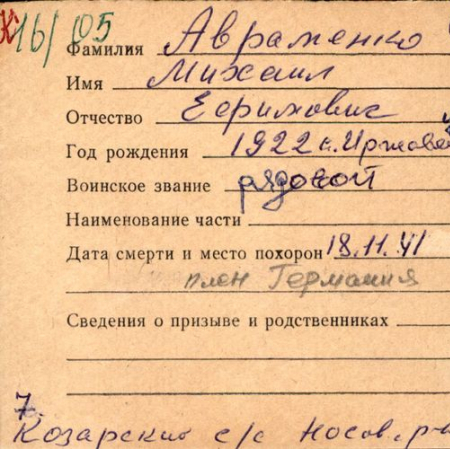 16/105
Фамилия Авраменко
Имя Михаил
Отчество Ефимович
Год рождения 1922 с. Иржаве
Воинское звание рядовой
Наименование части
Дата смерти и место похорон 18.11.41
плен Германия
Сведения о призыве и родственниках
7.
Козарский с/с Носов. р-н